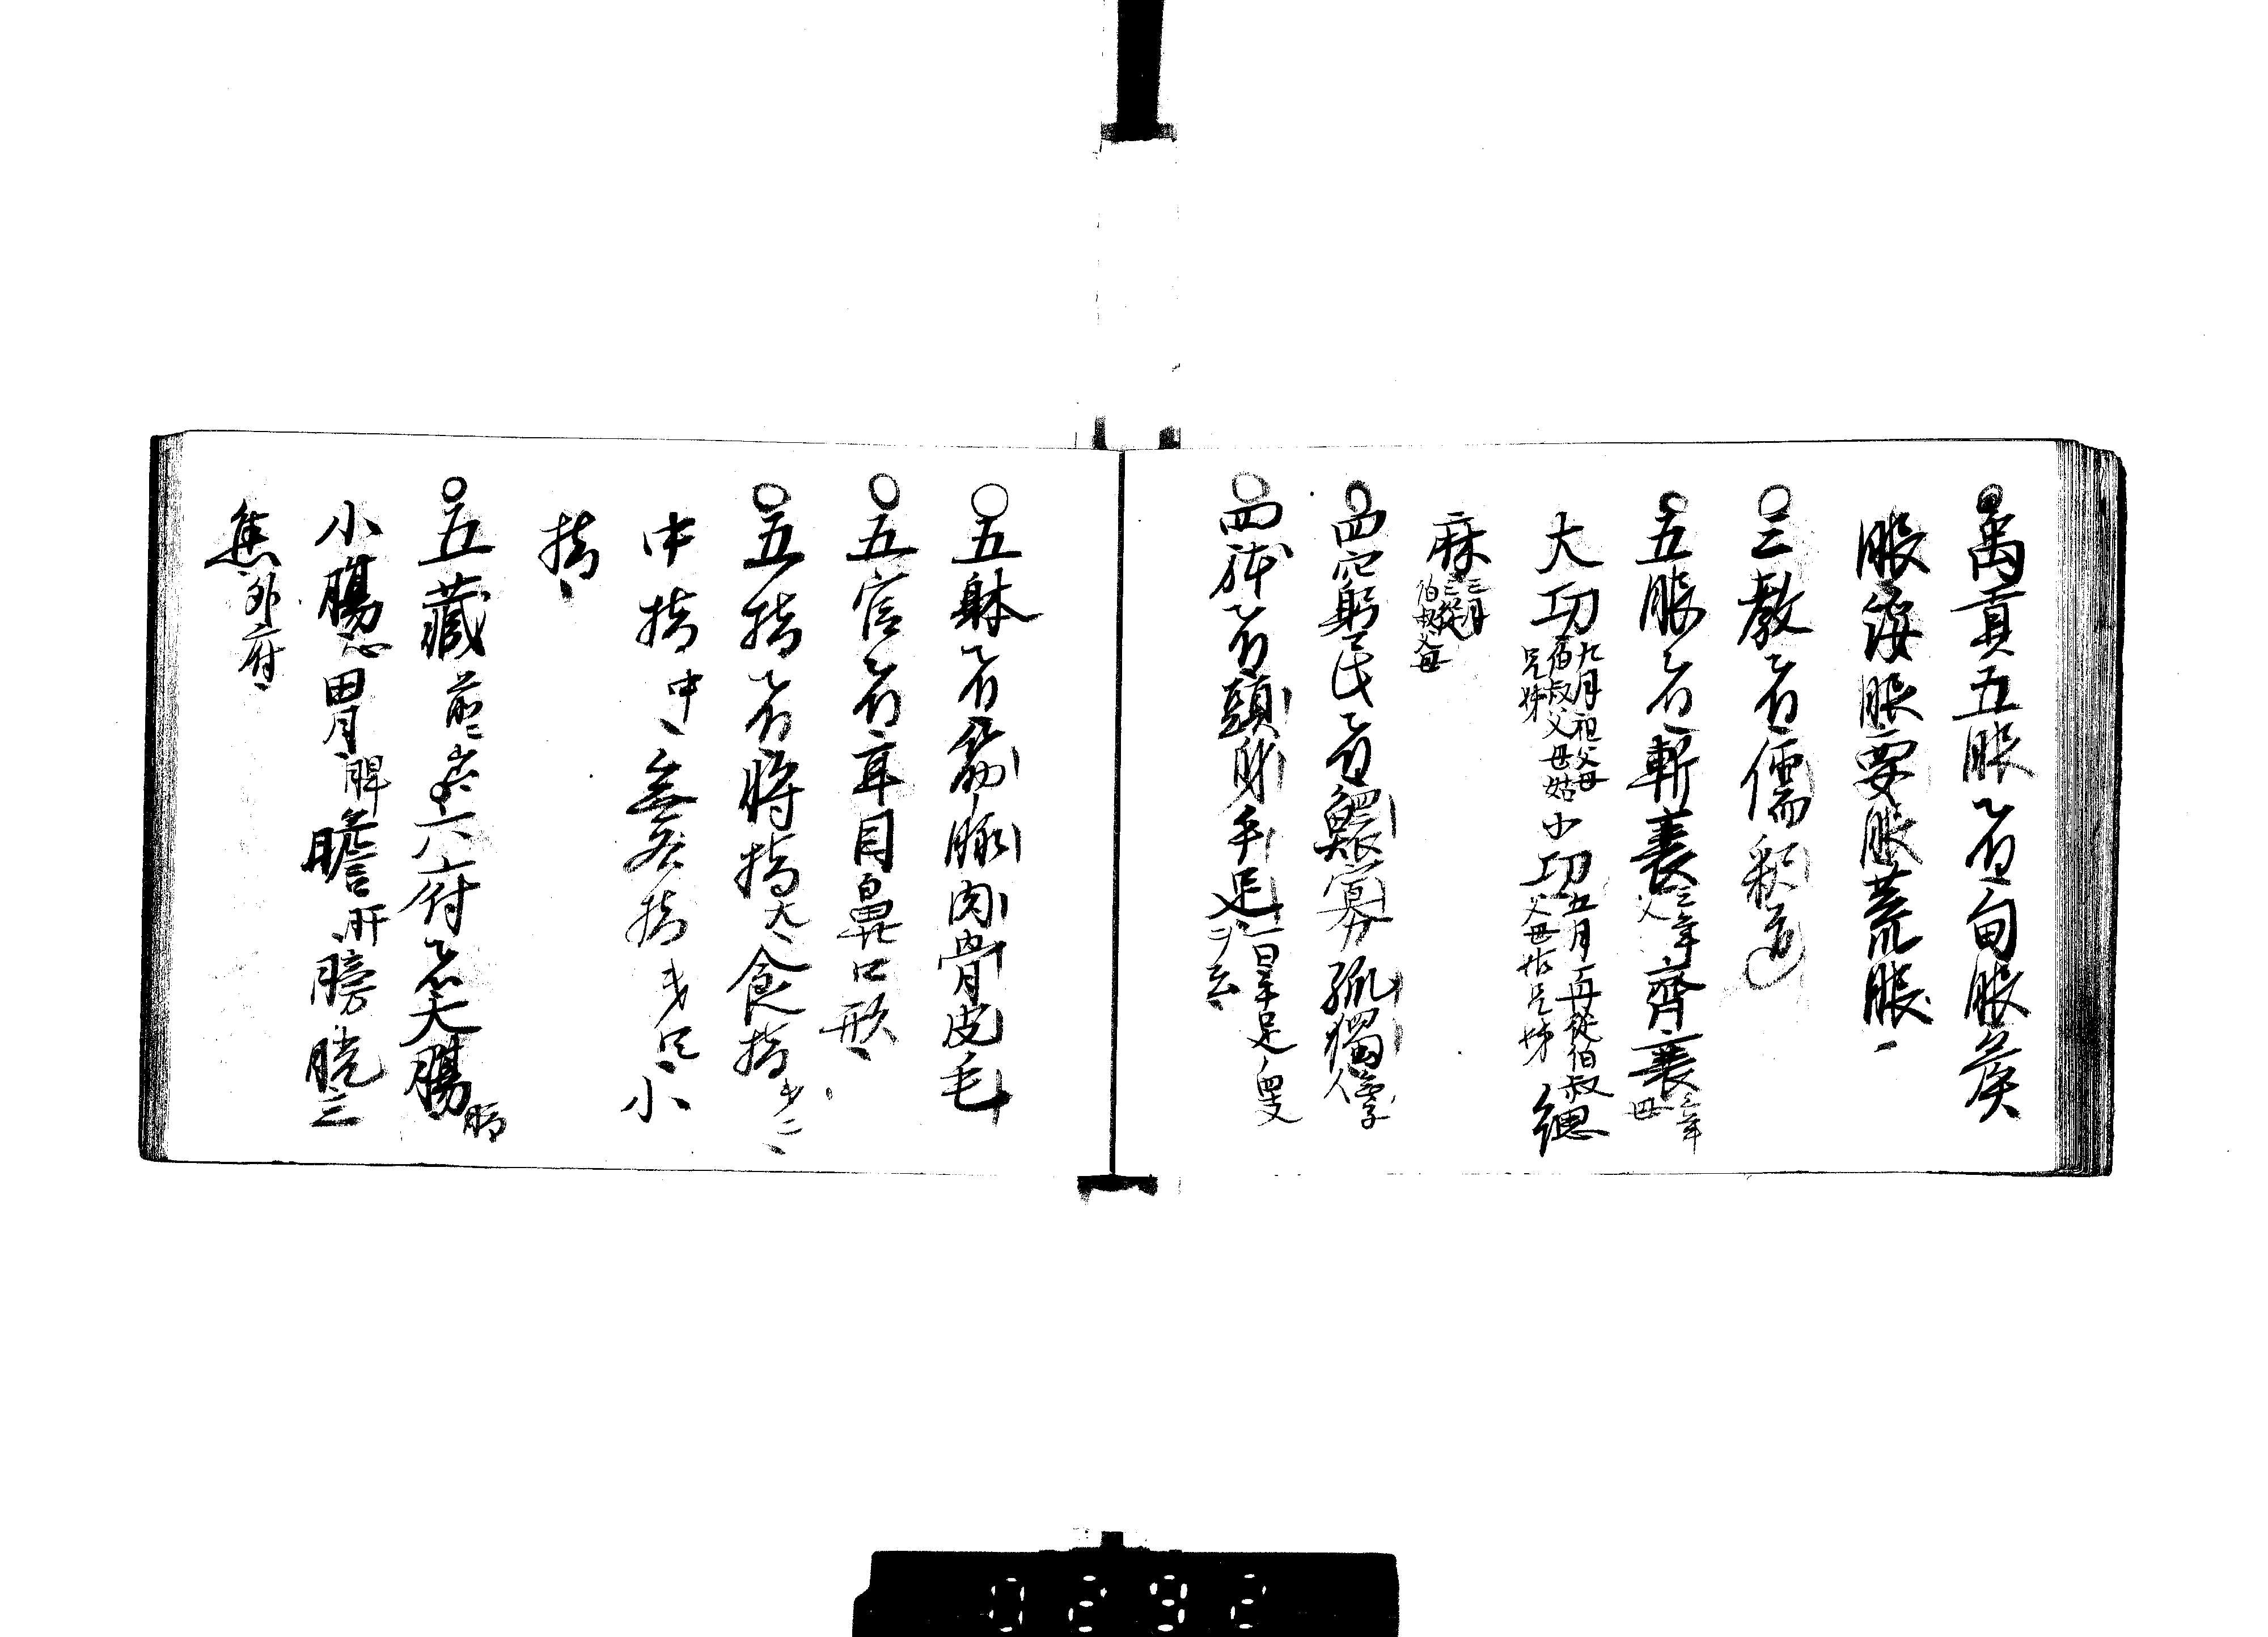 ○禹貢五服ト者甸服侯
服綏服要服荒服
○三教ト者儒釈道
○五服ト者斬衰三年父齊衰三年母
大功九月祖父母伯叔父母姑兄姊小功五月再従伯叔父母姑兄姊緦
麻三月三従伯叔父母
○四窮民ト者鰥寡孤獨
○四体ト者頭身手足
○五躰ト者筋脉肉骨皮毛
○五官ト者耳目鼻口形
○五指ト者将指大食指
中指中無名指小
指
○五藏六府ト者大腸肺
小腸心胃脾膽肝膀胱三
焦外府
0292